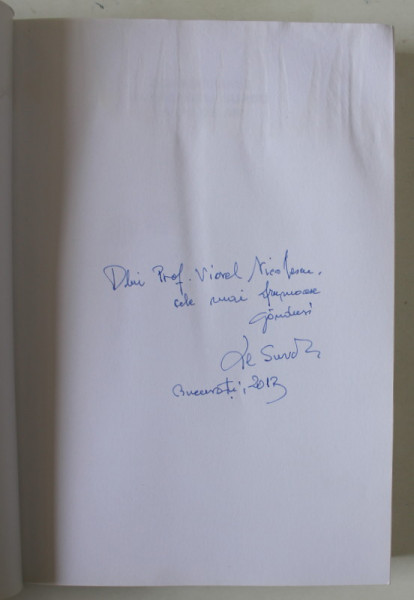 Dlui Prof. Viorel Nicolescu,
cele mai frumoase
gânduri
București, 2013